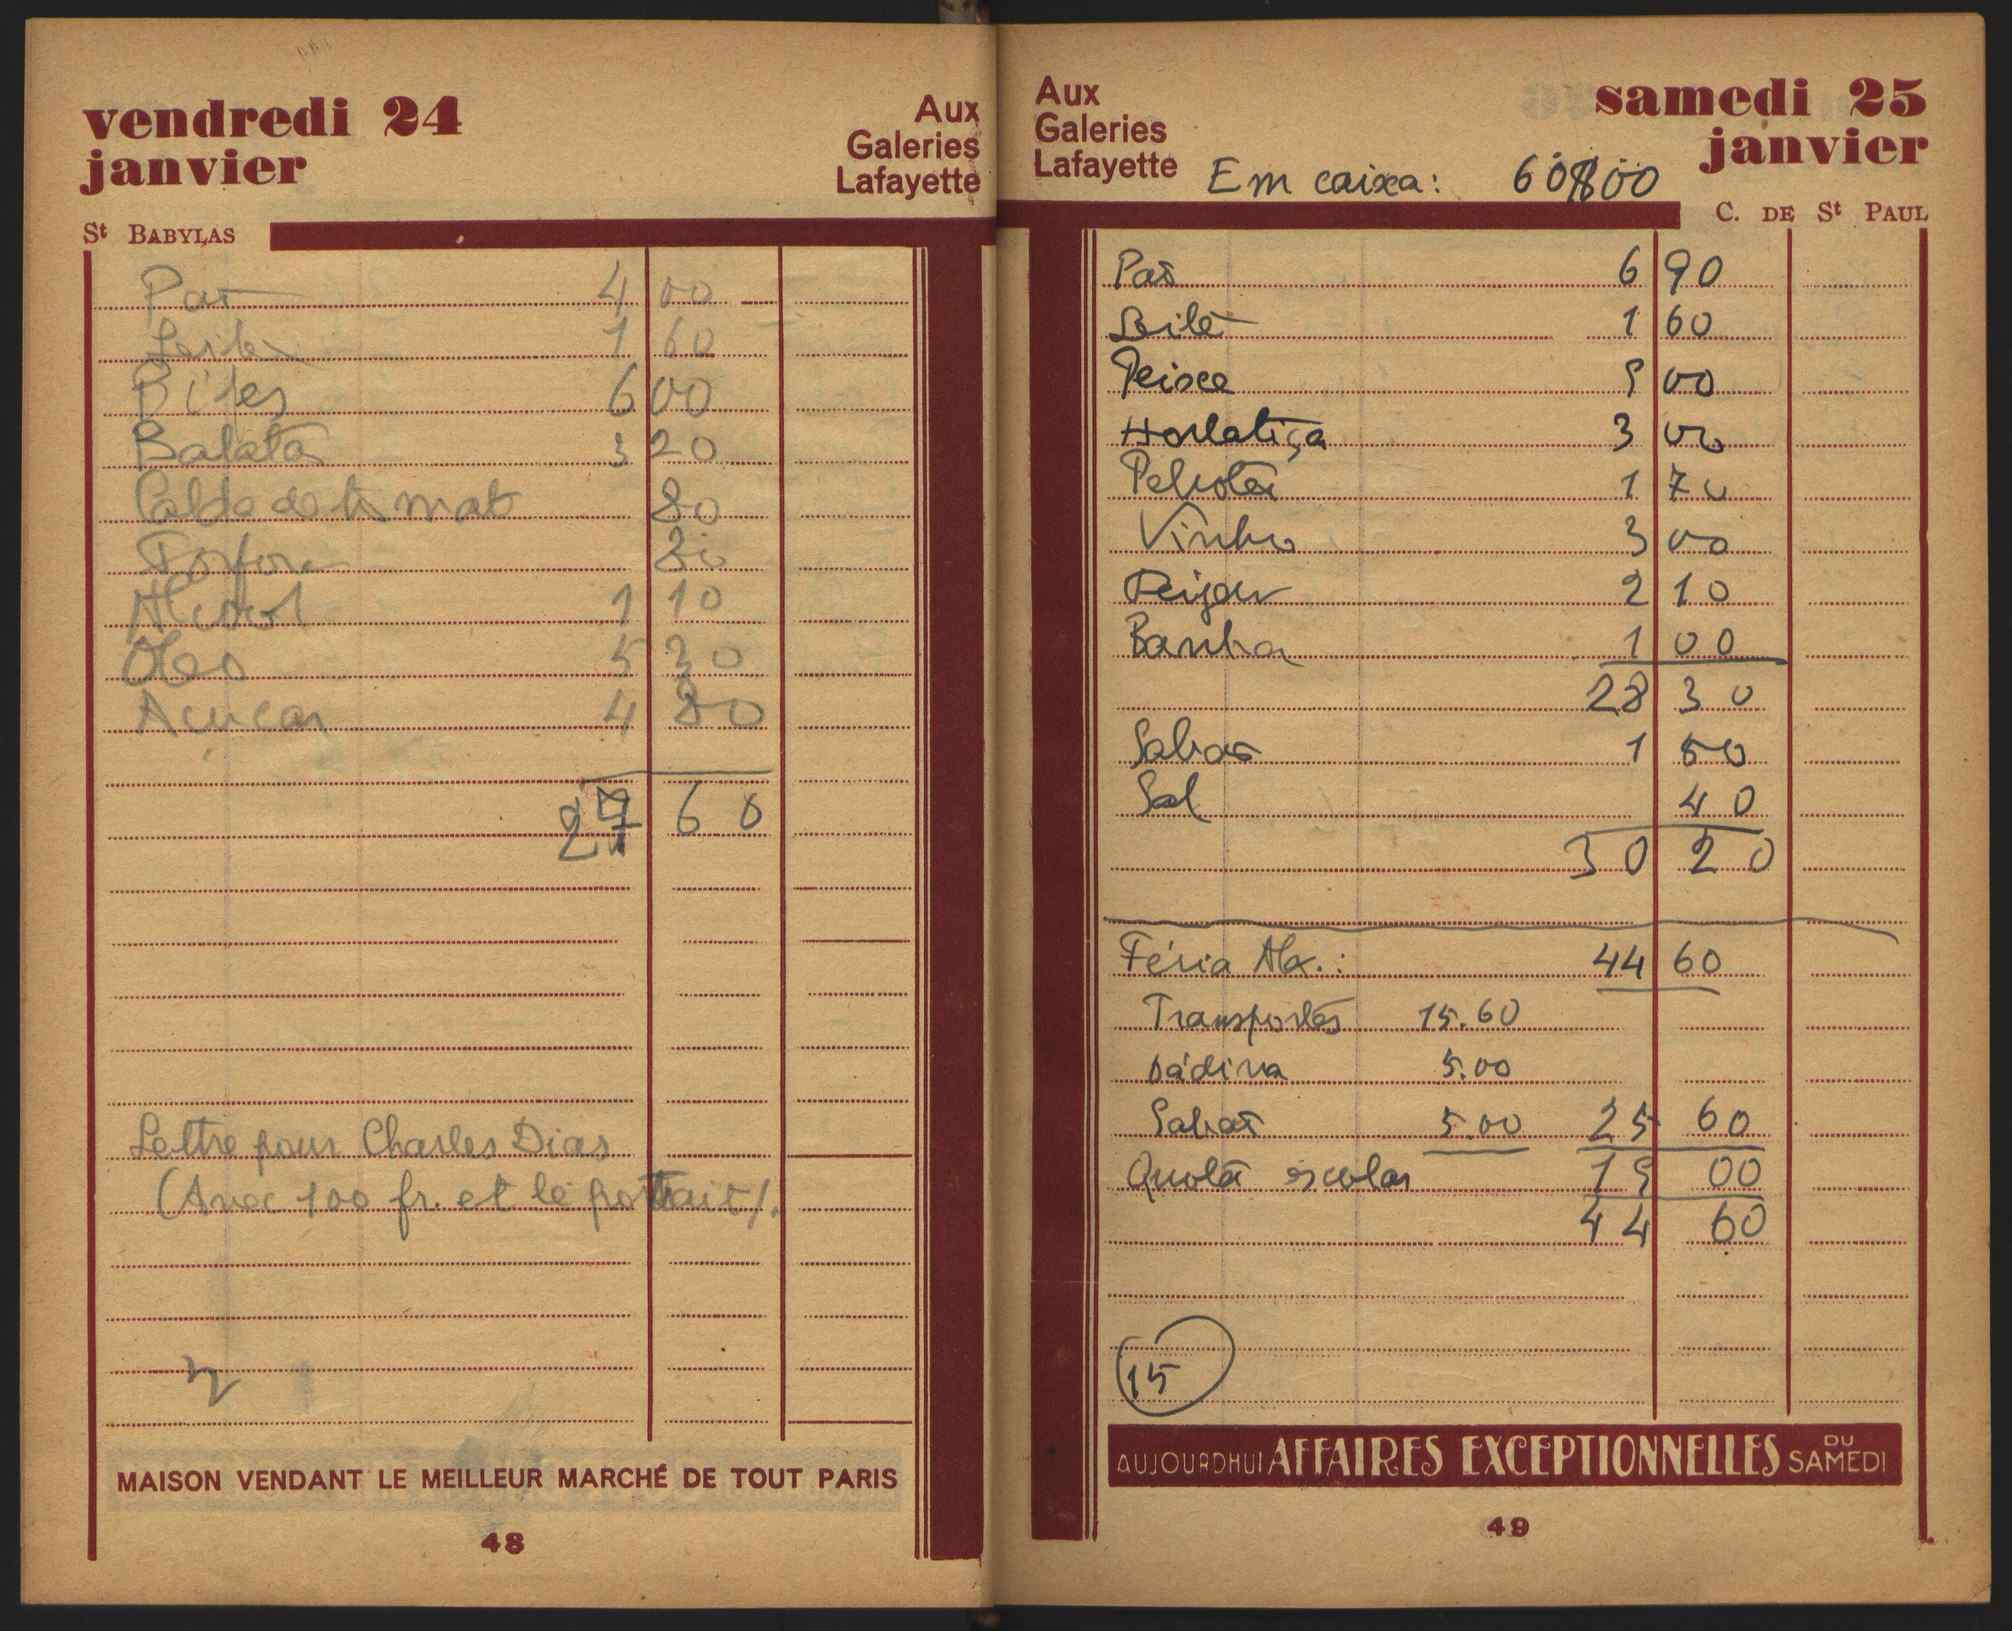 vendredi 24
janvier
Aux
Galeries
Lafayette
St BABYLAS
Pão 4 00
Leite 1 60
Bifes 6 00
Batata 3 20
Calda de tomat 80
Fosforo 80
Alcool 1 10
Oleo 5 30
Açucar 4 80
27 60
Lettre pour Charles Dias
(Avec 100 fr. et le portrait).
MAISON VENDANT LE MEILLEUR MARCHÉ DE TOUT PARIS
48
Aux
Galeries
Lafayette
samedi 25
janvier
Em caixa: 60$00
C. DE St PAUL
Pão 6 90
Leite 1 60
Peixe 9 00
Hortaliça 3 00
Petrotex 1 70
Vinho 3 00
Feijão 2 10
Banha 1 00
28 30
Sabão 1 50
Sal 40
30 20
Féria Alx.: 44 60
Transportes 15.60
Dádiva 5.00
Sabão 5.00 25 60
Quota escolar 19 00
44 60
15
AUJOURDHUI AFFAIRES EXCEPTIONNELLES DU SAMEDI
49